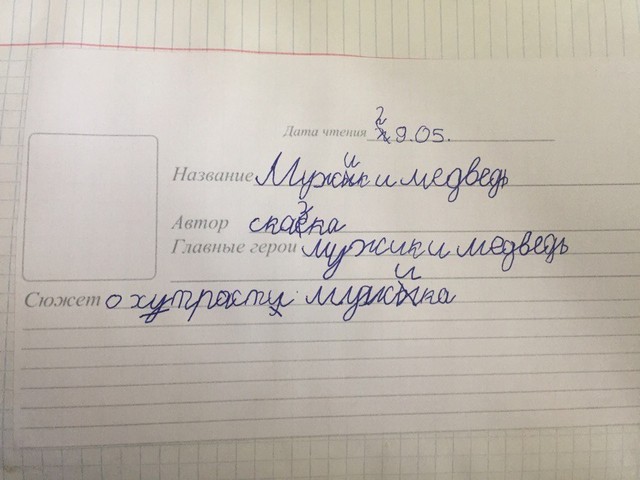 Дата чтения 29.05.
Название Мужик и медведь
Автор сказка
Главные герои мужик и медведь
Сюжет о хутрасти мужика